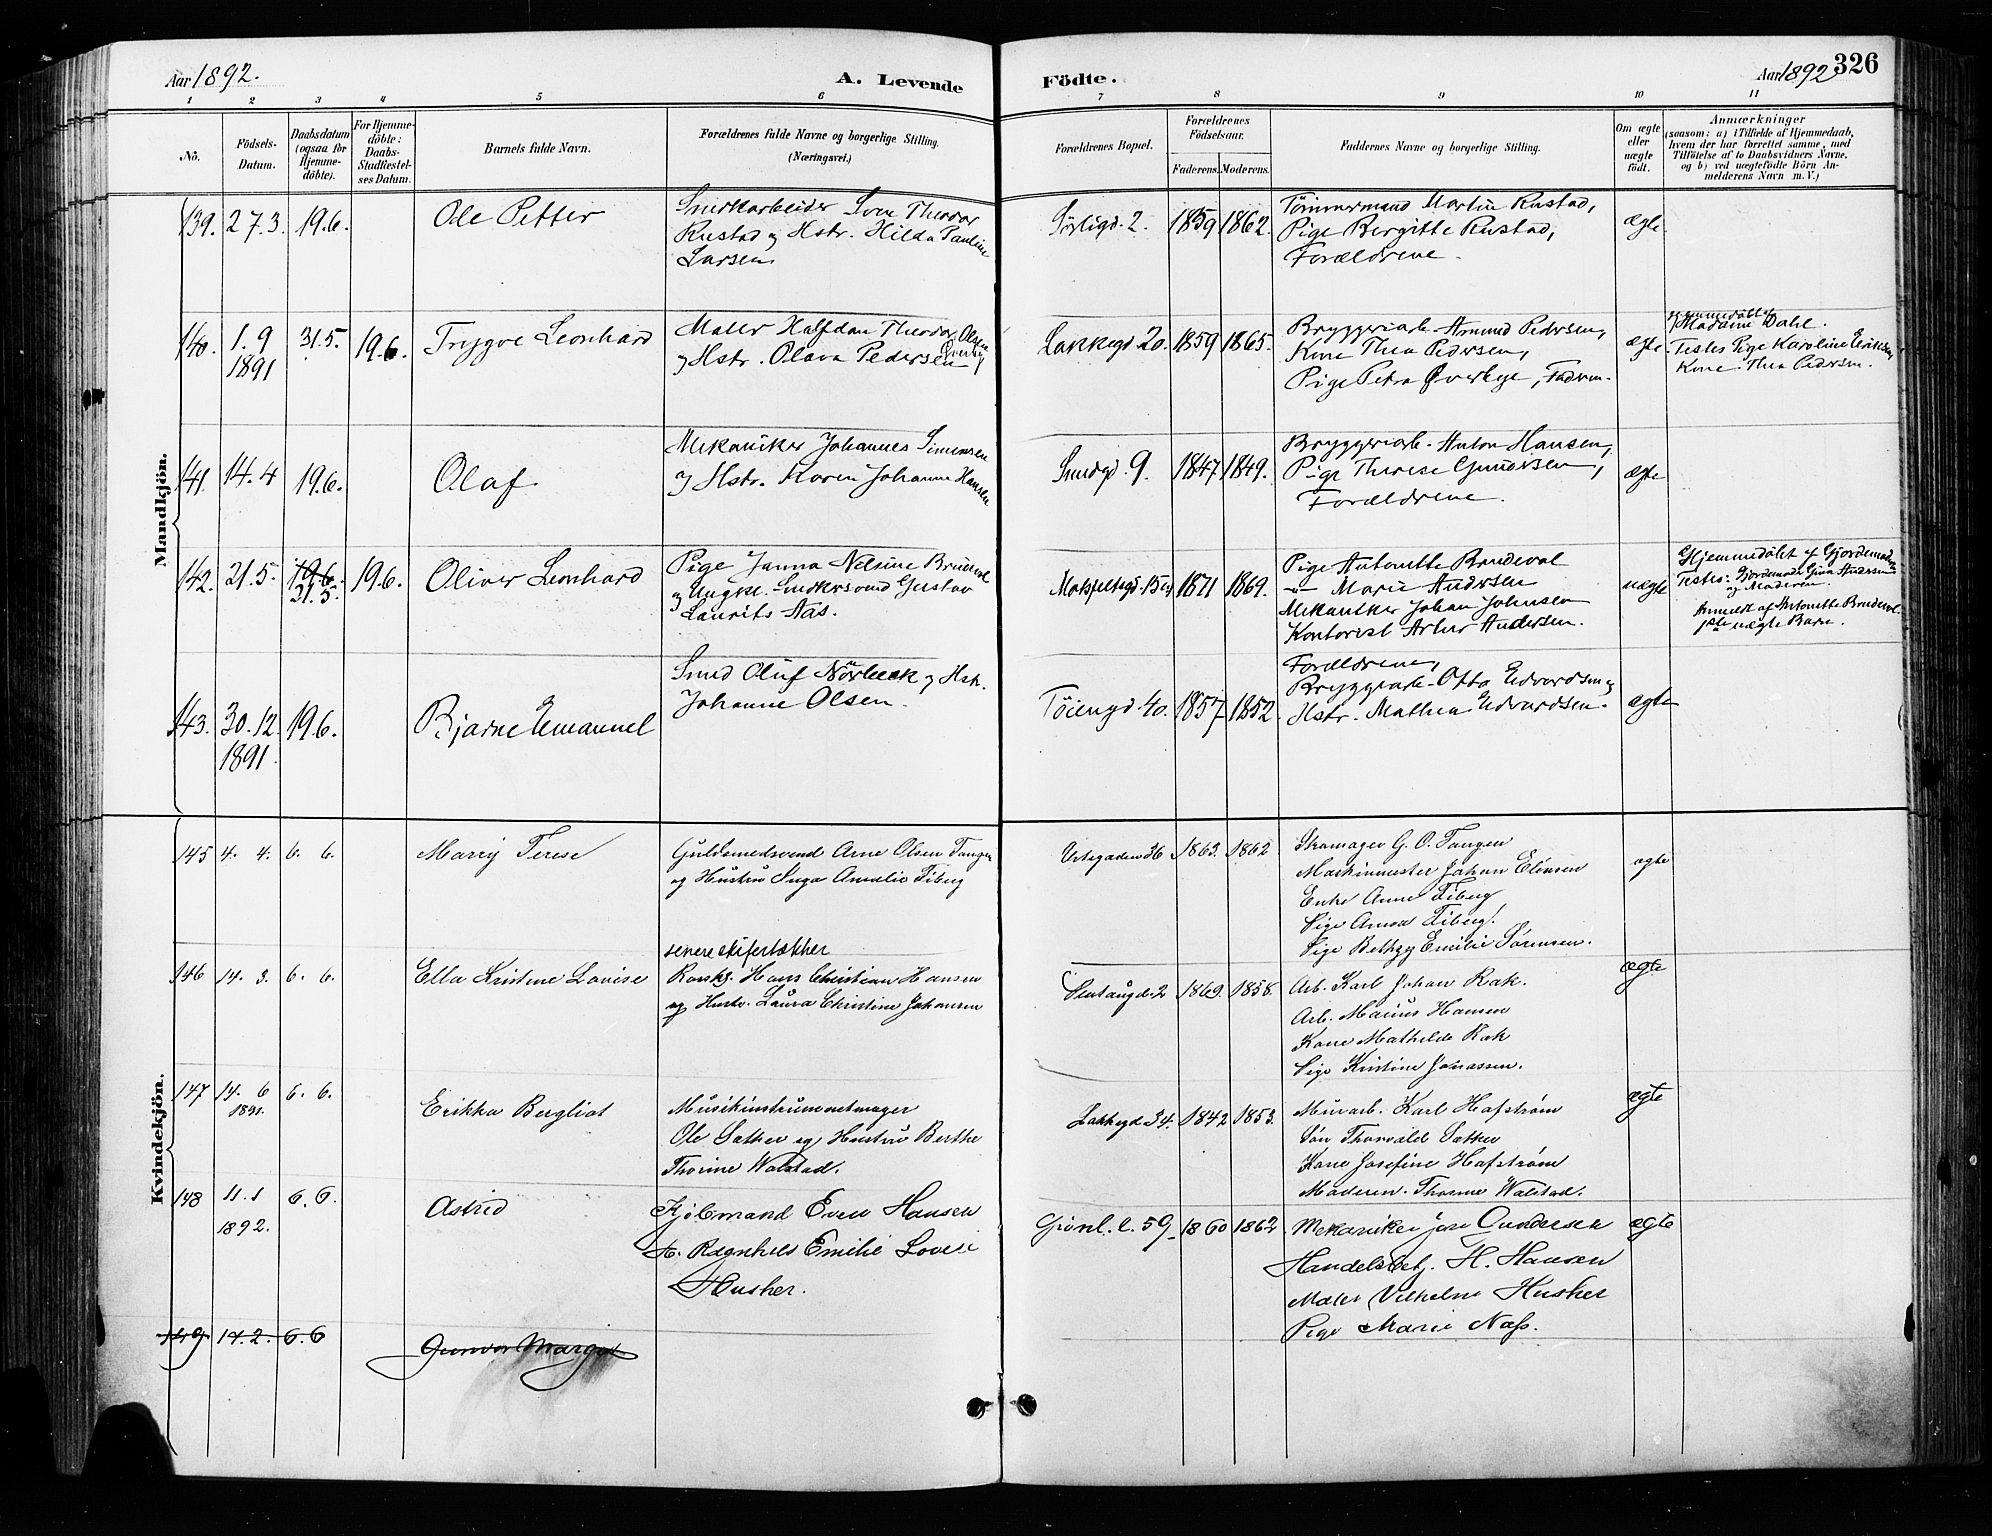 Aar 1892.
A. Levende
Födte.
Aar 1892
326
1 2 3 4 5 6 7 8 9 10 11
No.
Födsels-Datum.
Daabsdatum (ogsaa for Hjemme-döbte).
For Hjemme-döbte: Daabs-Stadfæstel-ses Datum.
Barnets fulde Navn.
Forældrenes fulde Navne og borgerlige Stilling. (Næringsvei.)
Forældrenes Bopæl.
Forældrenes Födselsaar.
Faderens. Moderens.
Faddernes Navne og borgerlige Stilling.
Om ægte eller uægte födt.
Anmærkninger
(saasom: a) i Tilfælde af Hjemmedaab,
hvem der har forrettet samme, med
Tilföielse af to Daabsvidners Navne,
og b) ved uægtefödte Börn An-
melderens Navn m. V.)
Mandkjön.
139. 27.3. 19.6. Ole Petter
Snedkarbeider Sven Theodor
Rustad og Hstr. Hilda Pauline
Larsen
Sörligd. 2. 1859 1862.
Tömmermand Martin Rustad,
Pige Bergitte Rustad,
Forældrene.
ægte
140. 1.9 1891 31.5. 19.6. Trygve Leonhard
Maler Halfdan Theodor Olsen Överby
og Hstr. Olava Pedersen
Lakkegd 20. 1859 1865.
Bryggeriarb. Amund Pedersen,
Kone Thea Pedersen,
Pige Petra Överbye, Faderen.
ægte
Hjemmedöbt af
Madame Dahl.
Testes Pige Karoline Eriksen
Kone Thea Pedersen.
141. 14.4 19.6. Olaf
Mekaniker Johannes Simensen
og Hstr. Karen Johanne Hansen
Smedgd. 9. 1847 1849.
Bryggeriarb. Anton Hansen,
Pige Therese Gundersen,
Forældrene.
ægte
142. 21.5. 19.6. 21.5. 19.6. Oliver Leonhard
Pige Janna Nelsine Brudevol
og Ungk. Snedkersvend Gustav
Laurits Nas.
1871 1869.
Pige Antonette Brudevol
—"— Marie Andersen
Mekaniker Johan Johnsen
Kontorist Artur Andersen.
uægte
Hjemmedöbt af Gjordemoder
Testes: Gjordemoder Gina Andersen
og Moderen.
Anmeldt af Antonette Brudevol.
1ste uægte Barn.
143. 30.12. 1891 19.6. Bjarne Emanuel
Smed Oluf Nörbeck og Hstr.
Johanne Olsen.
Töiengd. 40. 1857 1852.
Forældrene,
Bryggeriarb. Otto Edvardsen og
Hstr. Mathea Edvardsen.
ægte
Kvindekjön.
145 4. 4. 6. 6. Marry Terese
Guldsmedsvend Arne Olsen Tangen
og Hustru Inga Amalie Fiberg
Urtegaden 36 1863. 1862
Skomager G. O. Tangen
Maskinmester Johan Ellingsen
Enke Anne Fiberg
Pige Anna Fiberg.
Pige Bethzy Emilie Sörensen.
ægte
146 14. 3. 6. 6. Ella Kristine Lovise
senere skifertækker
Korsk. Hans Christian Hansen
og Hustr. Laura Christine Johansen
1869. 1858.
Arb. Karl Johan Rak.
Arb. Marius Hansen
Kone Mathilde Rak
Pige Kristine Jonassen.
ægte
147 14. 6 1891. 6. 6. Erikka Bergliot
Musikinstrumentmager
Ole Sather og Hustru Berthe
Thorine Walstad.
Lakkegd 34. 1842 1853.
Murarb. Karl Hafström
Sön Thorvald Sather
Kone Josefine Hafström
Moderen. Thorine Walstad.
ægte
148 11.1 1892. 6.6. Astrid
Kjölmand Even Hansen
H. Ragnhild Emilie Lovise
Husher.
Grönl. l. 59 1860 1862
Mekaniker Jens Gundersen
Handelsbetj. H. Hansen
Maler Vilhelm Husher
Pige Marie Nass.
ægte
149 14.2. 6.6 Gunvor Margit